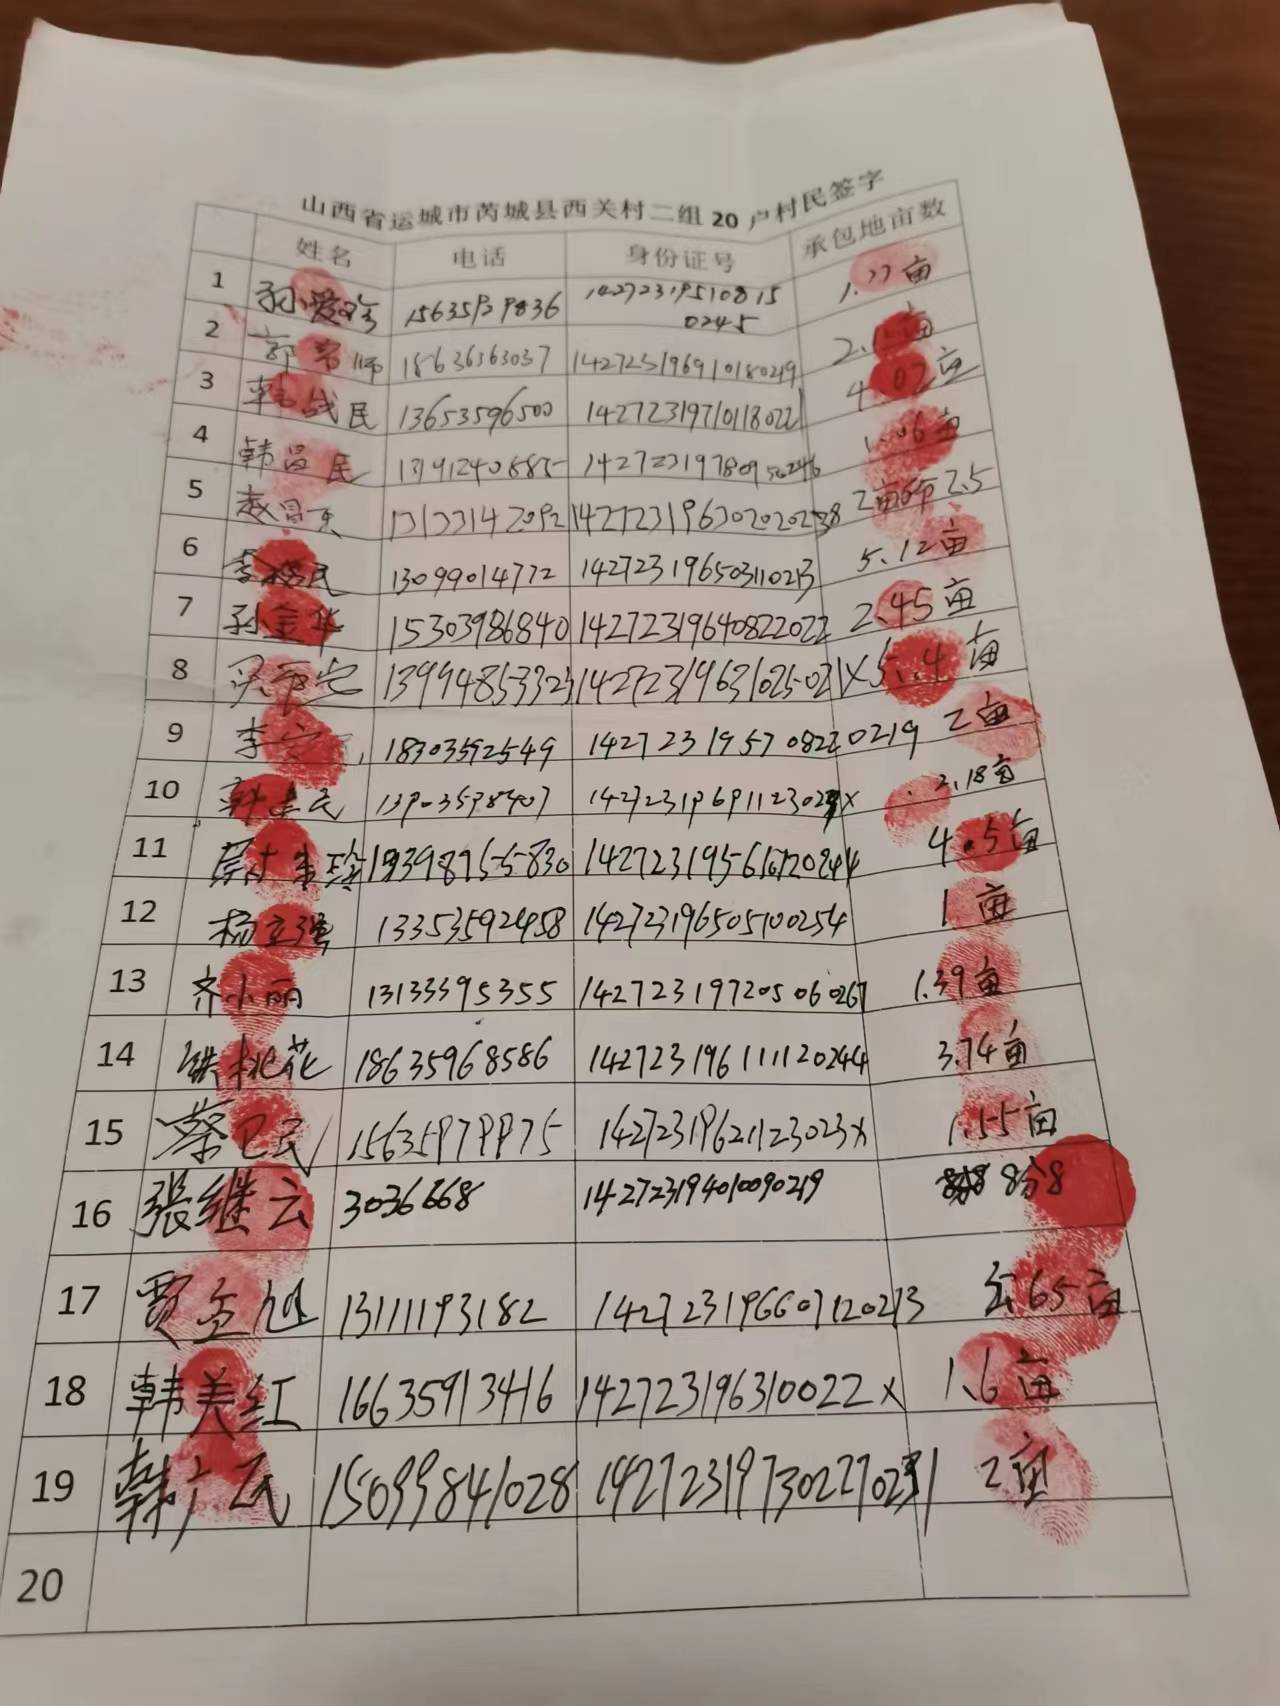 山西省运城市芮城县西关村二组20户村民签字
姓名 电话 身份证号 承包地亩数
1 孙爱 15635929836 142723195108150245 1.77亩
2 郭 师 18636363037 142723196910180219 2. 亩
3 韩战民 13653596500 14272319710118022 4.02亩
4 韩昌民 1.06亩
5 赵 2亩 2.5
6 李 民 13099014772 142723196503110213 5.12亩
7 孙金华 15303986840 142723196408220 2.45亩
8 13994853323 14272319631025021X 5.4亩
9 李 18303592549 142723195708220219 2亩
10 韩 民 13903598407 2.18亩
11 4.5亩
12 杨立强 13353592458 142723196505100254 1亩
13 齐小丽 13133395355 142723197205060267 1.39亩
14 桃花 18635968586 142723196111120244 3.74亩
15 蔡卫民 15635979975 14272319621123023X 1.55亩
16 張继云 3036668 142723194010090219 8分8
17 贾 旭 13111193182 142723196607120213 .65亩
18 韩美红 16635913416 142723196310022X 1.6亩
19 韩广民 15099841028 2亩
20